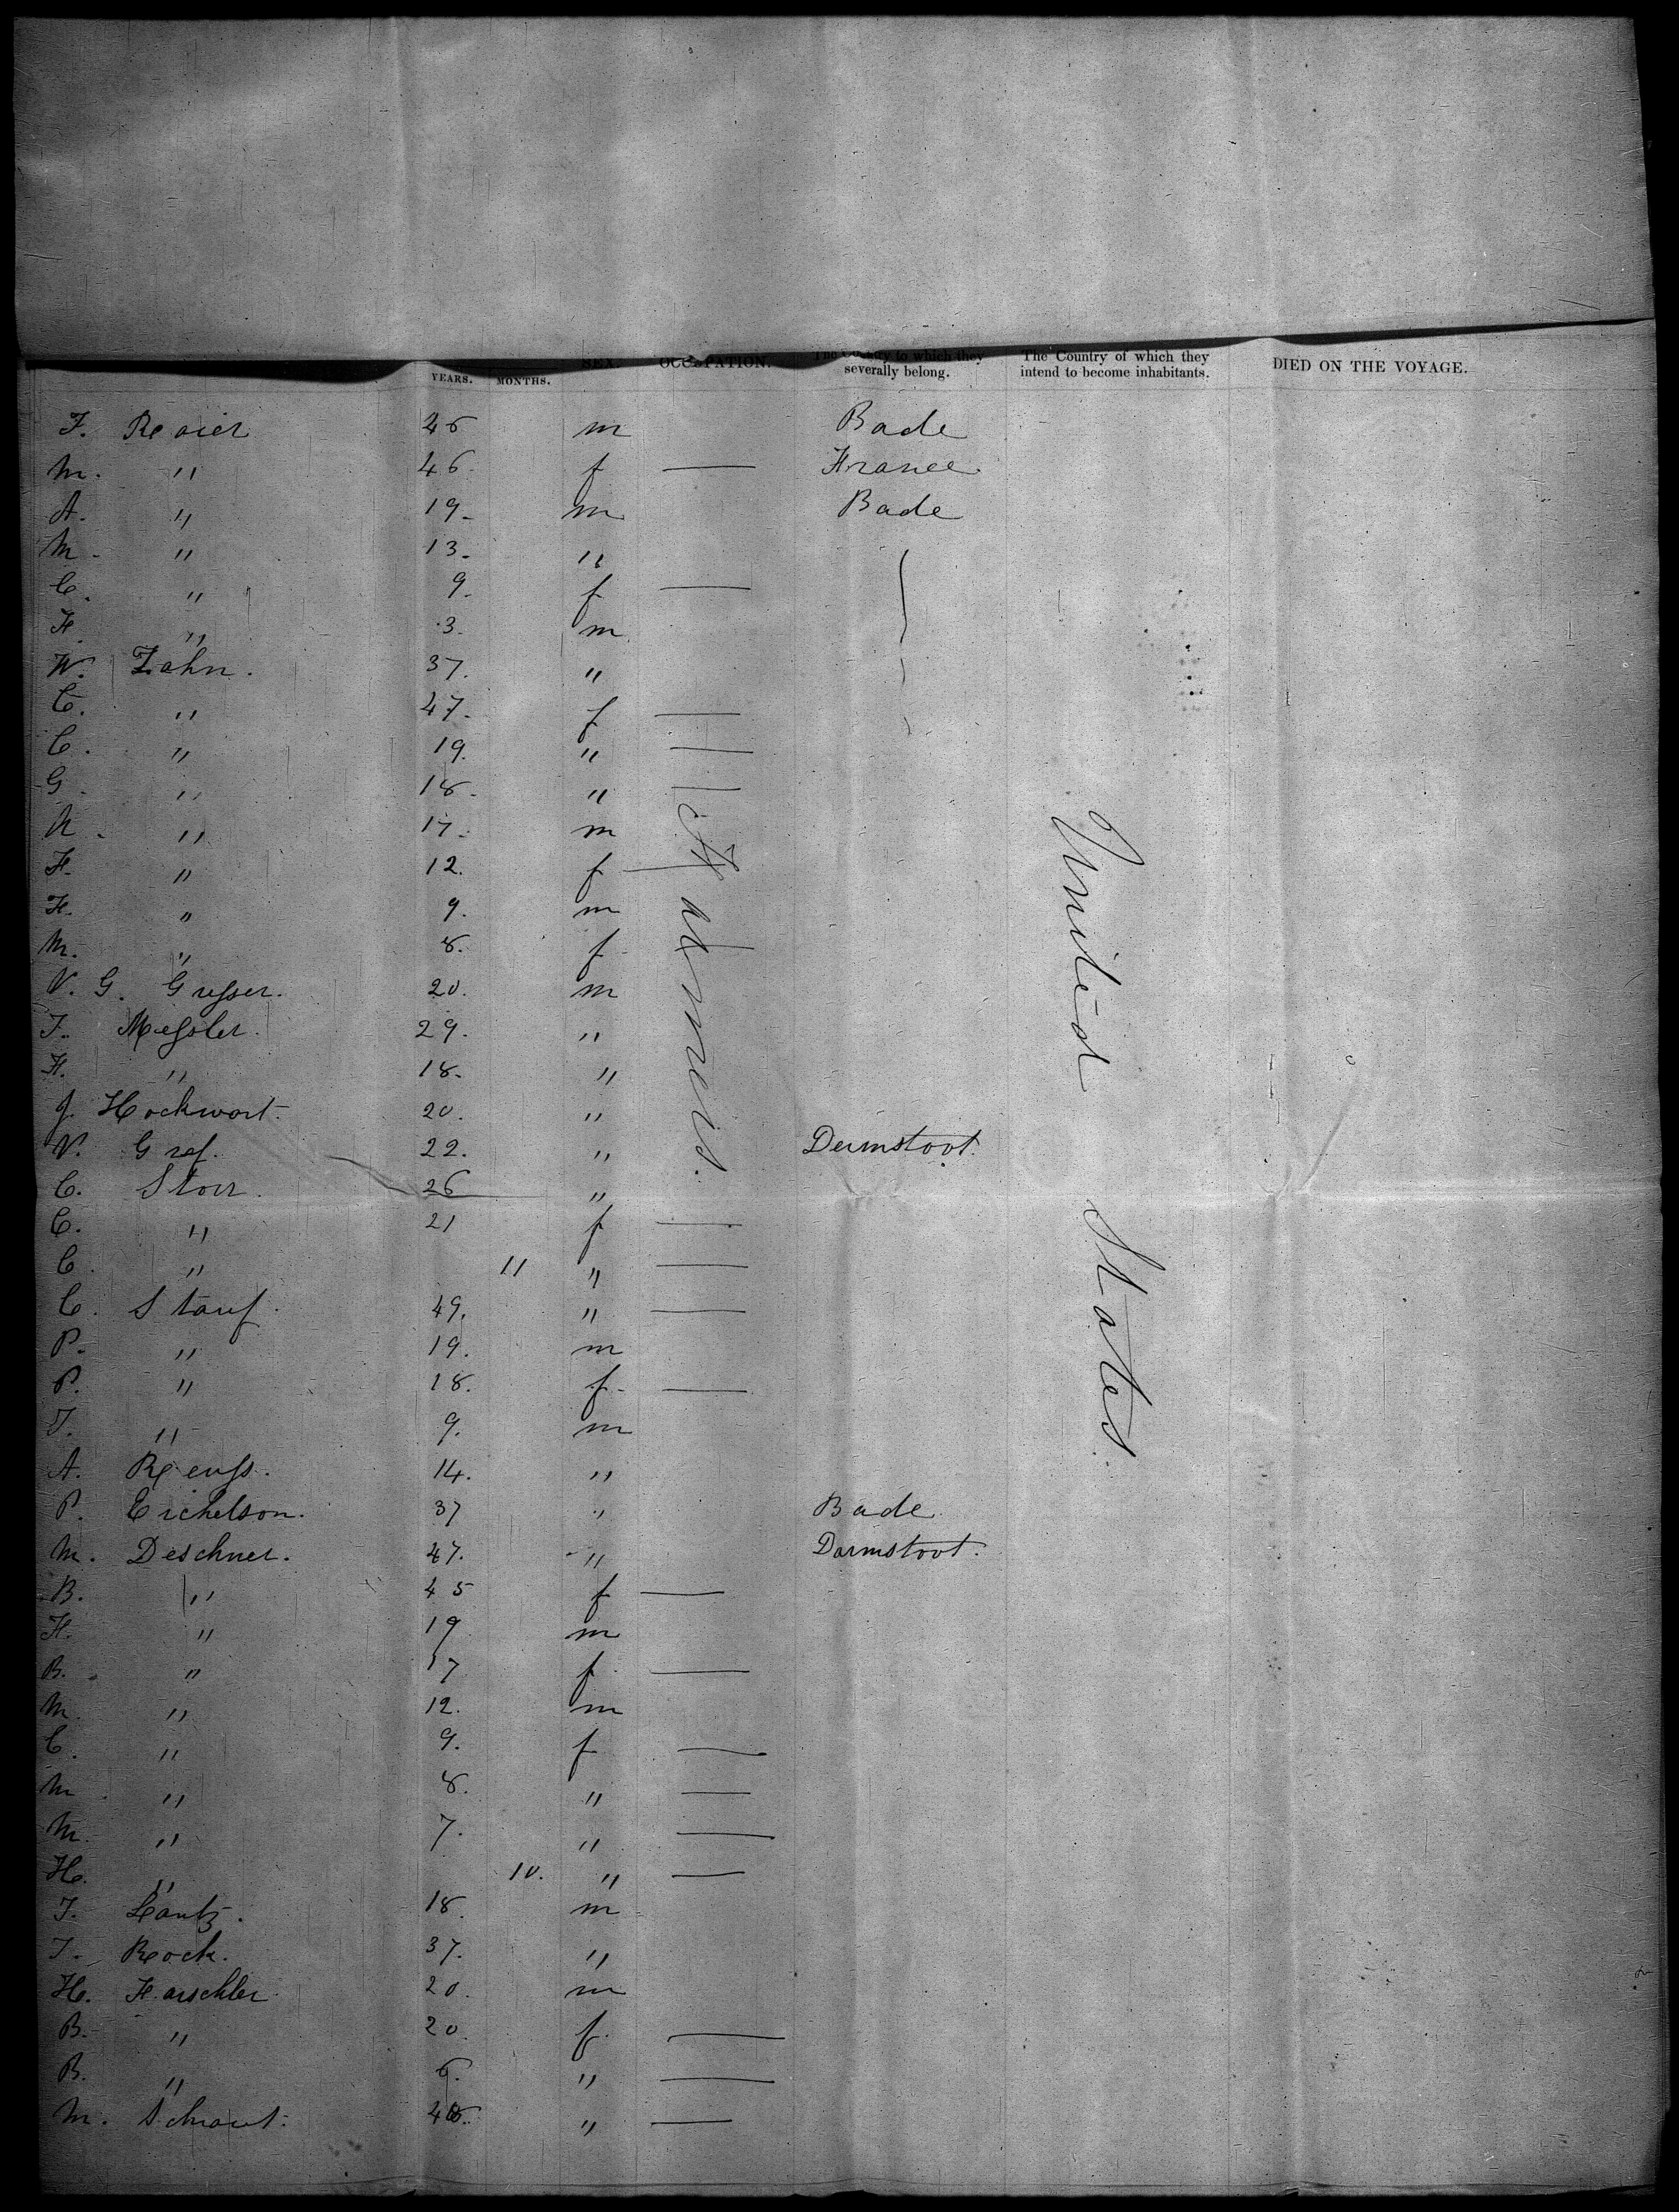 YEARS. MONTHS. SEX. OCCUPATION. The Country to which they severally belong. The Country of which they intend to become inhabitants. DIED ON THE VOYAGE.
46 m Bade
M. " 46 f — France
A. " 19 m Bade
M. " 13 "
C. " 9 f —
F. " 3 m
W. Zahn. 37 "
C. " 47 f —
C. " 19 " —
G. " 18 " —
" 17 m
F. " 12 f —
F. " 9 m
M. " 8 f
V. G. Gresser. 20 m
Messler. 29 "
F. " 18 "
J. Hockwart. 20 "
V. Graf. 22 " Dermstoot.
C. Storr. 26 "
C. " 21 f —
C. " 11 " —
C. Stauf. 49 " —
P. " 19 m
P. " 18 f —
" 9 m
A. Reuss. 14 "
P. Eichelson. 37 " Bade
M. Deschner. 47 " Darmstoot.
B. " 45 f —
F. " 19 m
B. " 17 f —
M. " 12 m
C. " 9 f —
M. " 8 " —
M. " 7 " —
H. " 10 " —
Lantz. 18 m
Rock. 37 "
H. Harschler 20 m
B. " 20 f —
B. " " —
M. " —
Farmers.
United States.